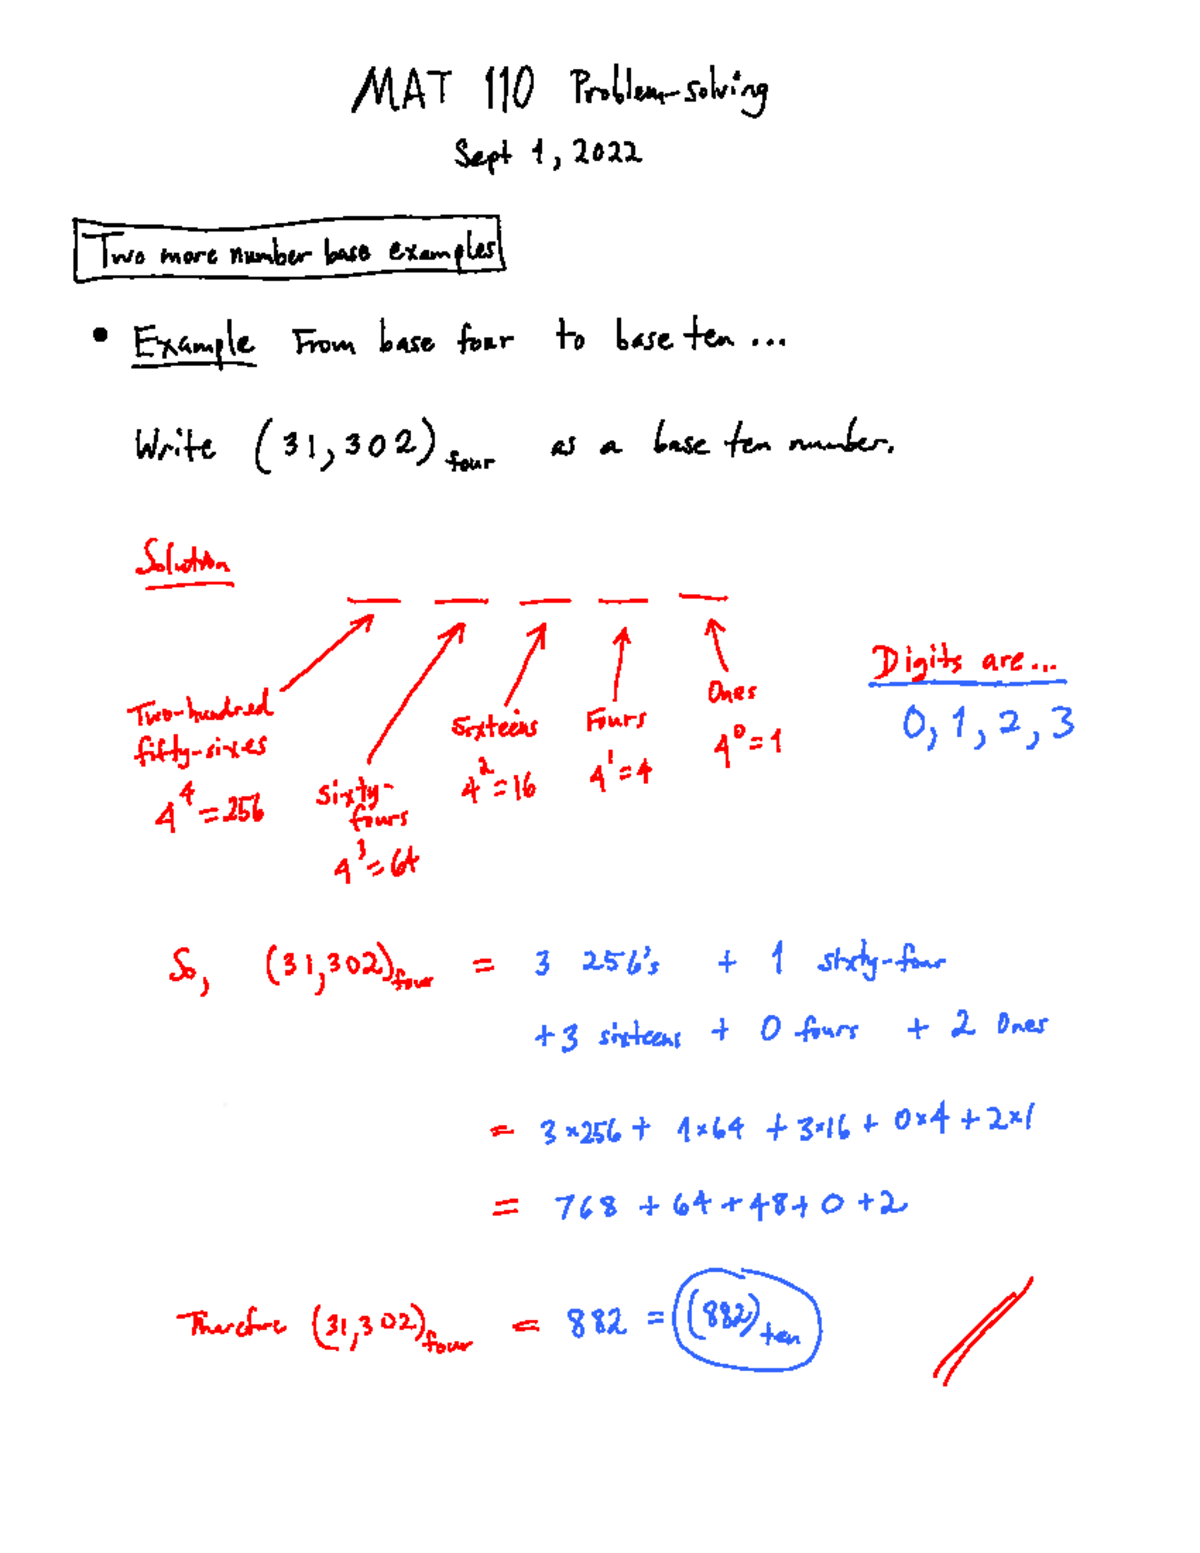 MAT 110 Problem-solving
Sept 1, 2022
Two more number base examples
• Example From base four to base ten...
Write (31,302)four as a base ten number.
Solution
Digits are...
0, 1, 2, 3
Two-hundred
fifty-sixes
4⁴=256
Sixty-
fours
4³=64
Sixteens
4²=16
Fours
4¹=4
Ones
4⁰=1
So, (31,302)four = 3 256's + 1 sixty-four
+3 sixteens + 0 fours + 2 Ones
= 3×256 + 1×64 + 3×16 + 0×4 + 2×1
= 768 + 64 + 48 + 0 + 2
Therefore (31,302)four = 882 = (882)ten